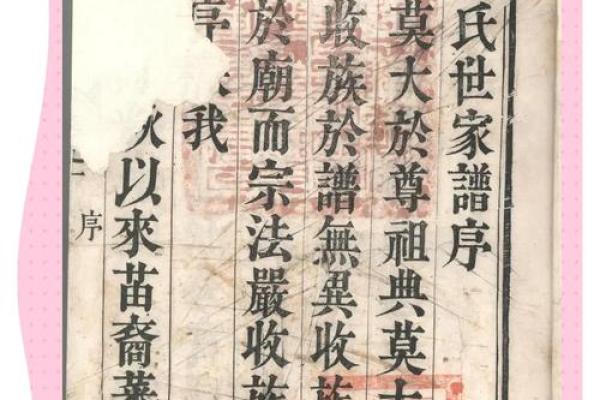 氏世家譜序
莫大於尊祖典莫大
收族於譜無異收族
於廟而宗法嚴收族
序
我
以來苗裔蕃
序